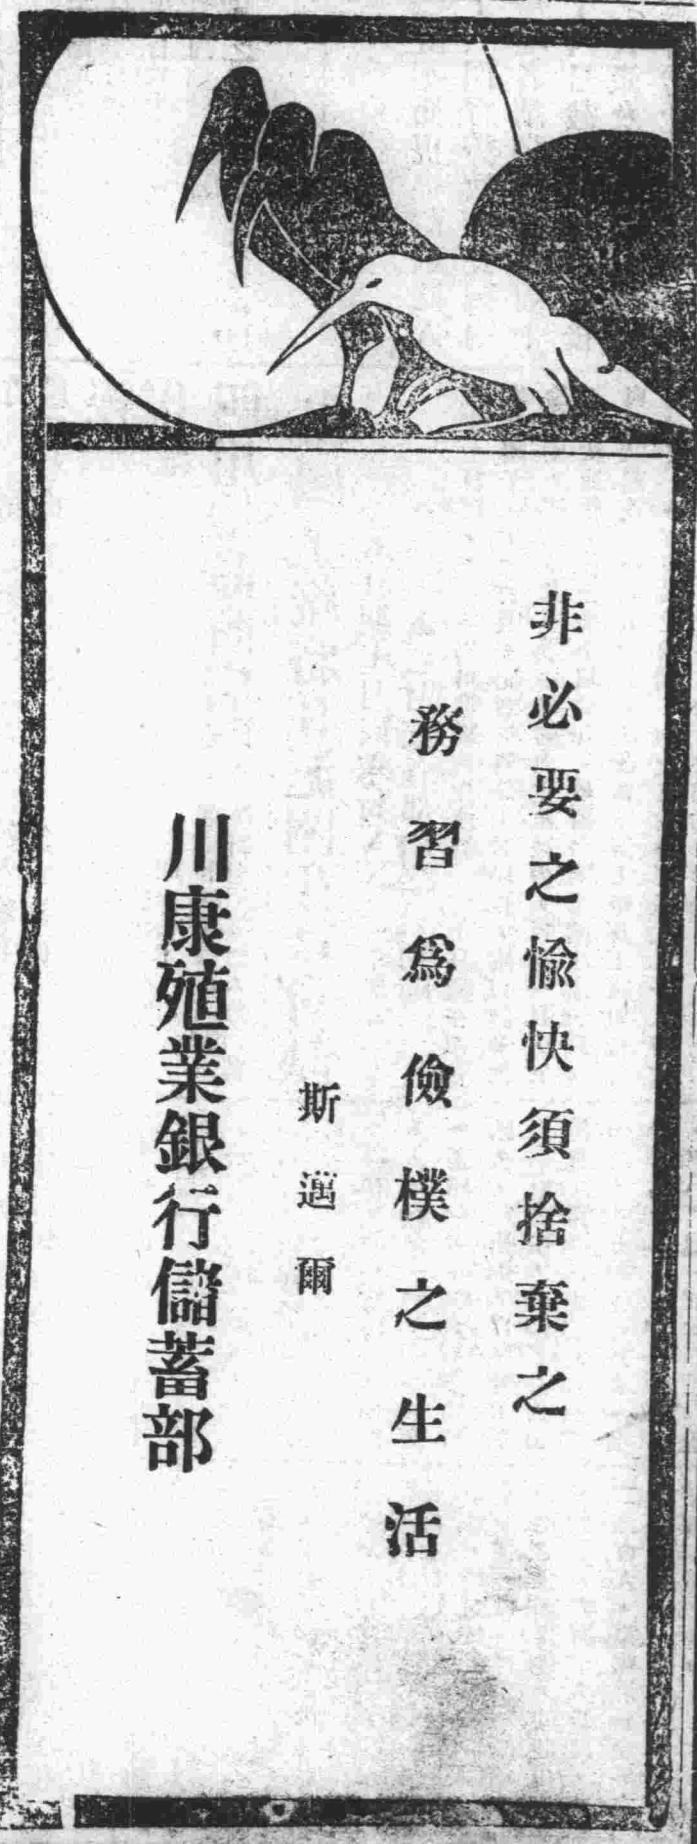 非必要之愉快須捨棄之
務習爲儉樸之生活
斯邁爾
川康殖業銀行儲蓄部